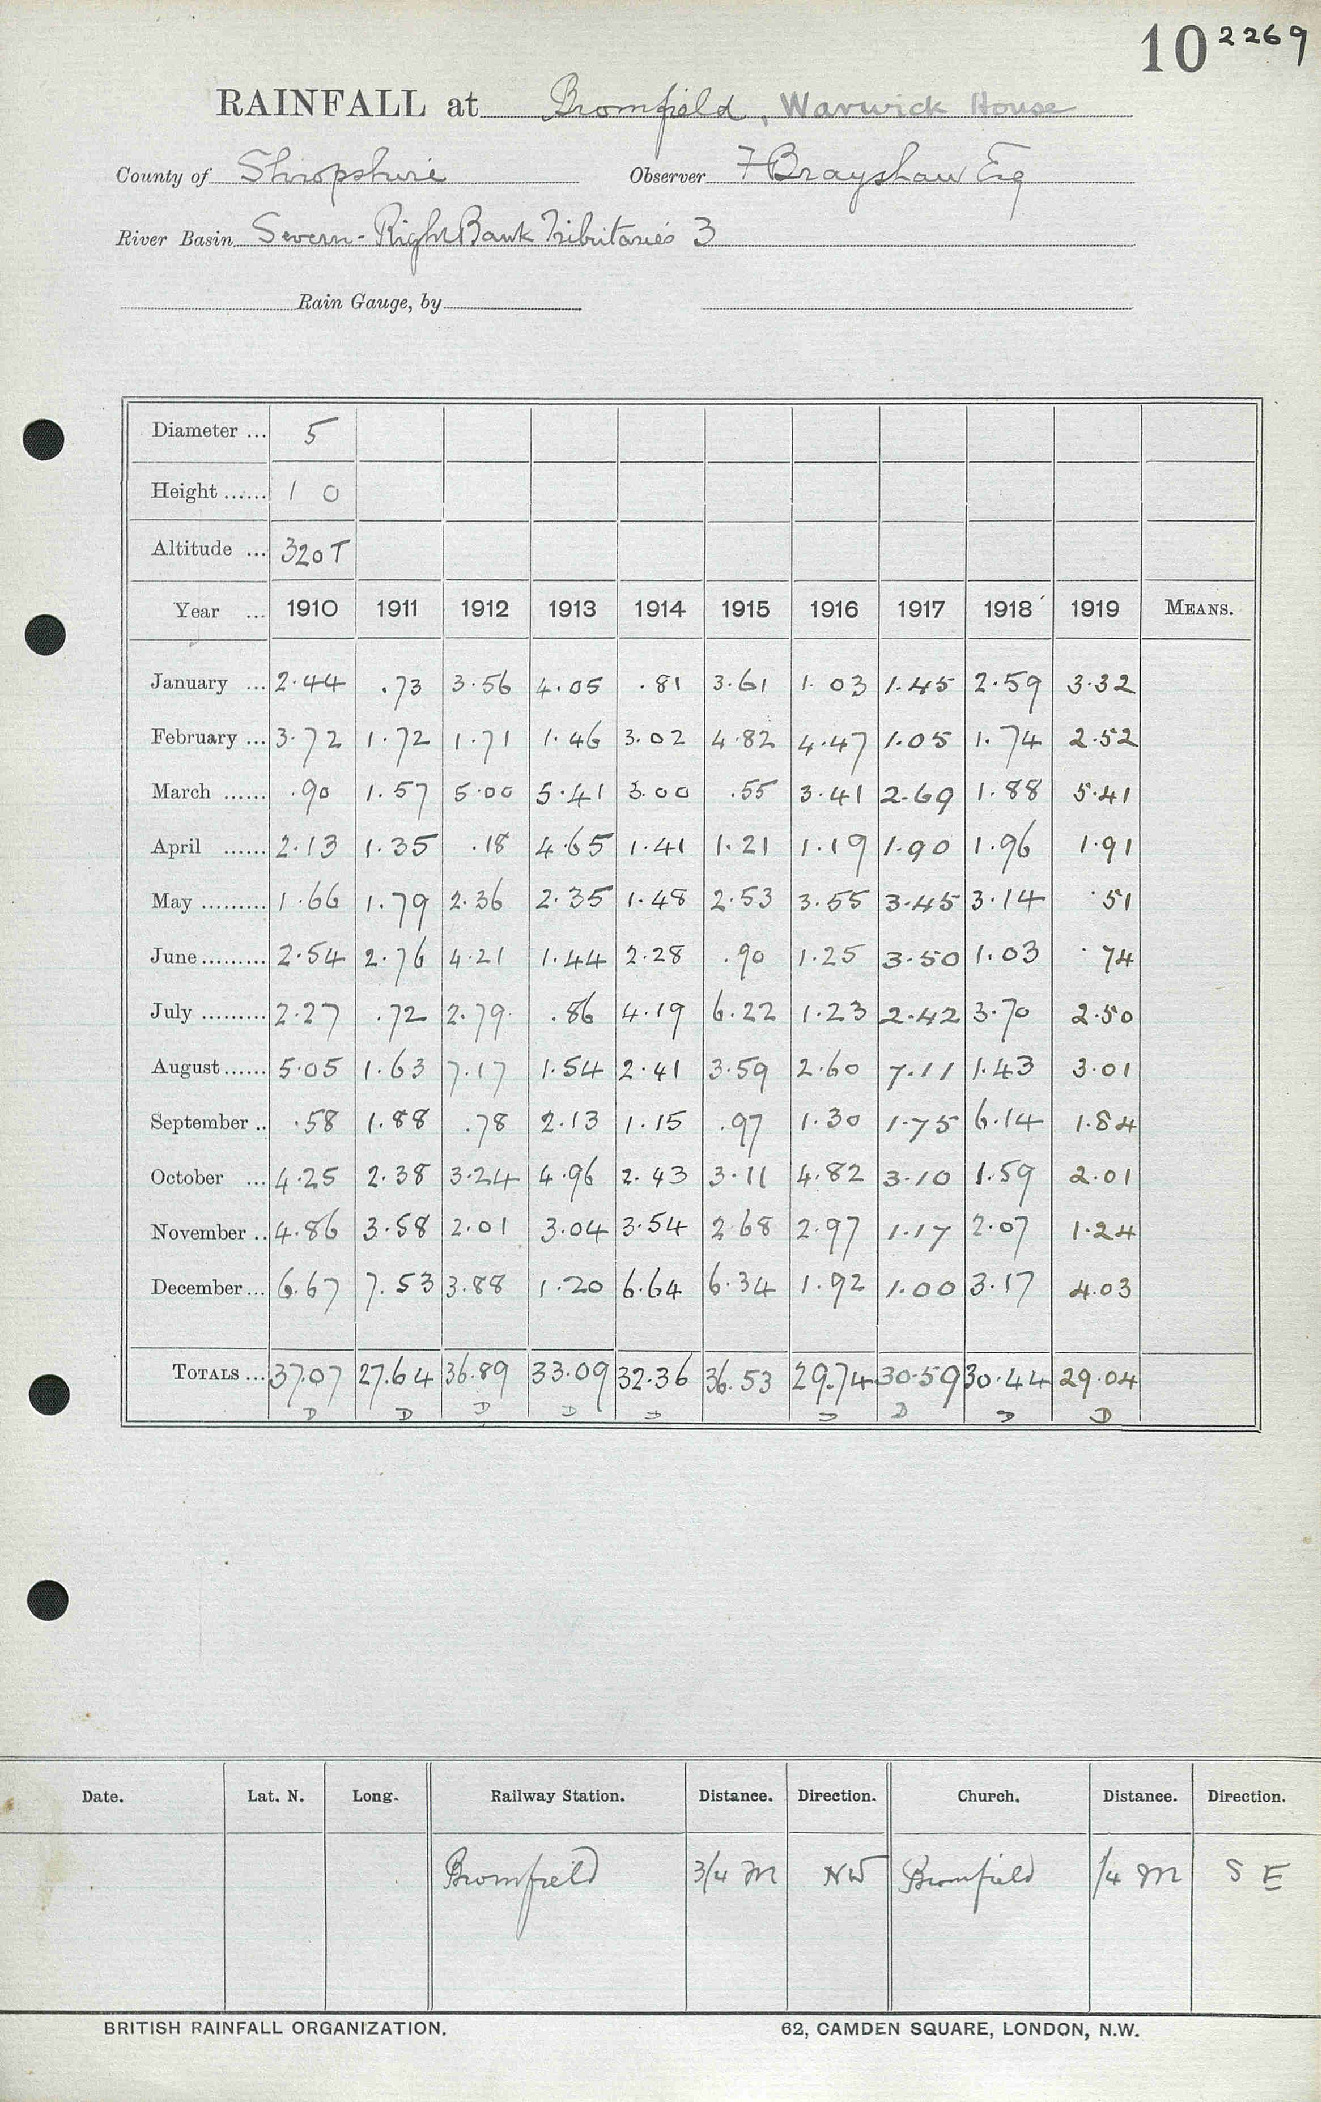 10 2269
RAINFALL at Bromfield, Warwick House
County of Shropshire Observer F Brayshaw Esq
River Basin Severn - Right Bank Tributaries 3
Rain Gauge, by
Diameter ... 5
Height ...... 1 0
Altitude ... 320 T
Year ... 1910 1911 1912 1913 1914 1915 1916 1917 1918 1919 MEANS.
January ... 2.44 .73 3.56 4.05 .81 3.61 1.03 1.45 2.59 3.32
February ... 3.72 1.72 1.71 1.46 3.02 4.82 4.47 1.05 1.74 2.52
March ...... .90 1.57 5.00 5.41 3.00 .55 3.41 2.69 1.88 5.41
April ...... 2.13 1.35 .18 4.65 1.41 1.21 1.19 1.90 1.96 1.91
May ......... 1.66 1.79 2.36 2.35 1.48 2.53 3.55 3.45 3.14 .51
June ......... 2.54 2.76 4.21 1.44 2.28 .90 1.25 3.50 1.03 .74
July ......... 2.27 .72 2.79 .86 4.19 6.22 1.23 2.42 3.70 2.50
August ...... 5.05 1.63 7.17 1.54 2.41 3.59 2.60 7.11 1.43 3.01
September .. .58 1.88 .78 2.13 1.15 .97 1.30 1.75 6.14 1.84
October ... 4.25 2.38 3.24 4.96 2.43 3.11 4.82 3.10 1.59 2.01
November .. 4.86 3.58 2.01 3.04 3.54 2.68 2.97 1.17 2.07 1.24
December ... 6.67 7.53 3.88 1.20 6.64 6.34 1.92 1.00 3.17 4.03
TOTALS ... 37.07 27.64 36.89 33.09 32.36 36.53 29.74 30.59 30.44 29.04
D D D D D D D D D
Date. Lat. N. Long. Railway Station. Distance. Direction. Church. Distance. Direction.
Bromfield 3/4 M NW Bromfield 1/4 M S E
BRITISH RAINFALL ORGANIZATION. 62, CAMDEN SQUARE, LONDON, N.W.